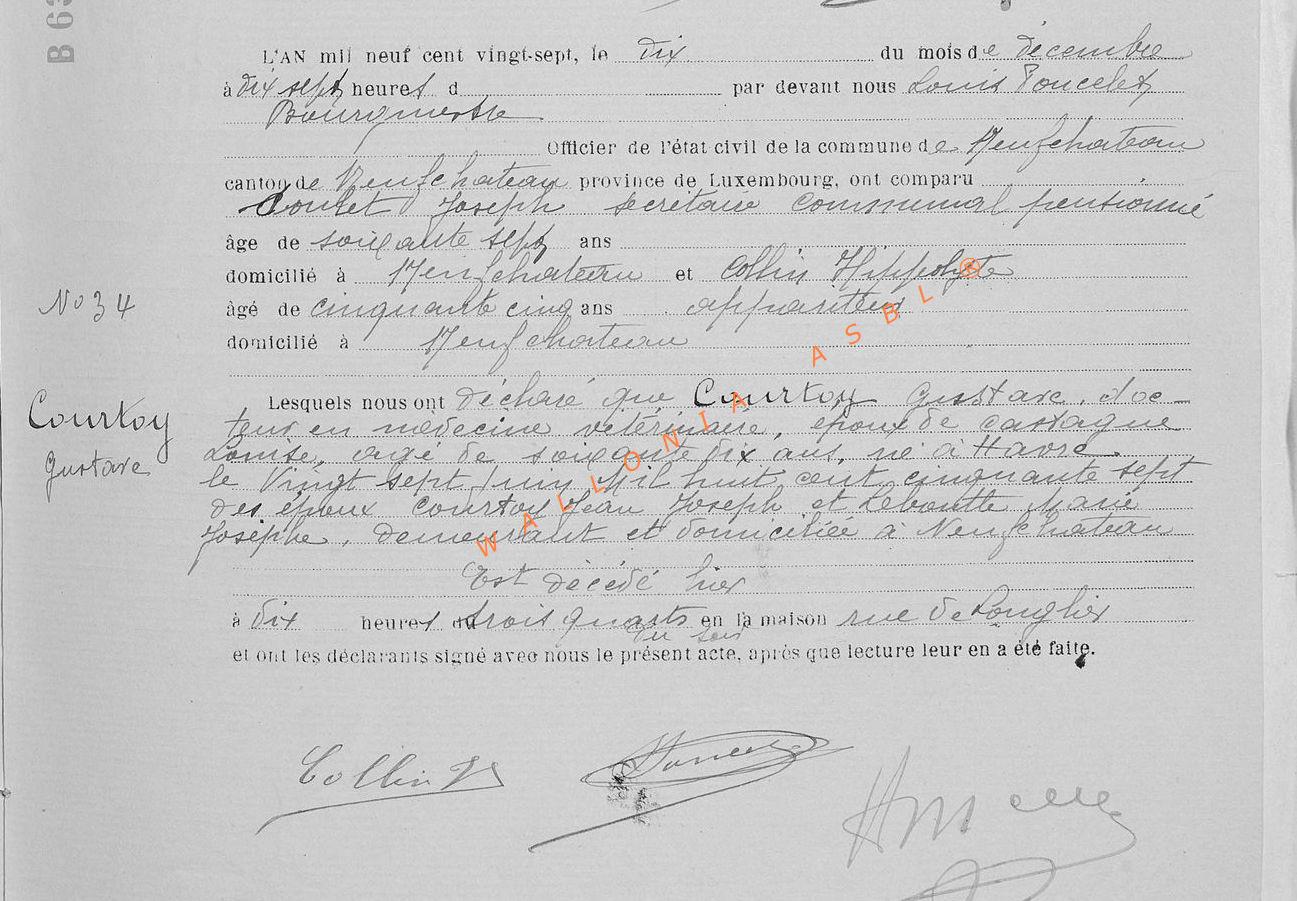 B 63
L'AN mil neuf cent vingt-sept, le dix du mois de décembre
à dix sept heures d par devant nous Louis Poncelet
Bourgmestre
Officier de l'état civil de la commune de Neufchateau
canton de Neufchateau province de Luxembourg, ont comparu
Joseph secrétaire communal pensionné
âge de soixante sept ans
domicilié à Neufchateau et Collin Hippolyte
No 34
âgé de cinquante cinq ans appariteur
domicilié à Neufchateau
Courtoy
Gustave
Lesquels nous ont déclaré que Courtoy Gustave, doc-
teur en médecine vétérinaire, époux de Castagne
Louise, agé de soixante dix ans, né à Havré
le Vingt sept Juin Mil huit cent cinquante sept
des époux Courtoy Jean Joseph et Leboutte Marie
Josèphe, demeurant et domiciliée à Neufchateau
Est décédé hier
à dix heures trois quarts en la maison rue de Longlier
du soir
et ont les déclarants signé avec nous le présent acte, après que lecture leur en a été faite.
WALLONIA ASBL ®
Collin H